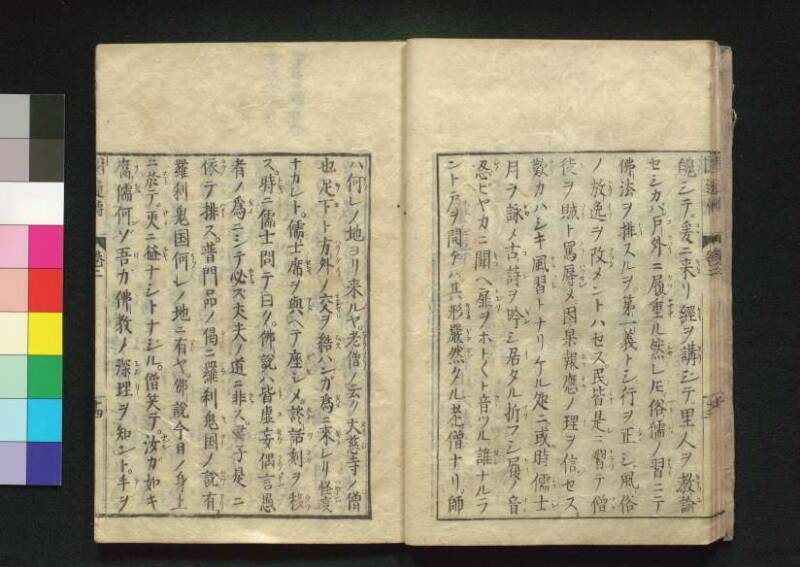 シテ爰ニ来リ經ヲ講シテ里人ヲ教諭
セシカバ戸外ニ履重ル然レ𪜈俗儒ノ習ニテ
佛法ヲ排スルヲ第一義トシ行ヲ正シ風俗
ノ放逸ヲ改メントハセス民皆是ニ習テ僧
徒ヲ賊ト罵辱メ因果報應ノ理ヲ信セス
歎カハシキ風習トナリケル処ニ或時儒士
月ヲ詠メ古詩ヲ吟シ居タル折フシ履ノ音
忍ヒヤカニ聞ヘ扉ヲホト〱ト音ツル誰ナルラ
ント戸ヲ開ケバ其形嚴然タル老僧ナリ師
ハ何レノ地ヨリ来ルヤ老僧ノ云ク大慈寺ノ僧
也足下ト方外ノ交ヲ結ハンガ為ニ来レリ怪
ナカレト儒士席ヲ與ヘテ座シメ談話刻ヲ移
ス時ニ儒士問テ曰ク佛説ハ皆虚妄偶言愚
者ノ為ニシテ必ス大夫ノ道ニ非ス妻子是ニ
依テ排ス普門品ノ偈ニ羅刹鬼国ノ説有
羅刹鬼国何レノ地ニ有ヤ佛説今日ノ身上
ニ於テ更ニ益ナシトナジル僧笑テ汝ガ如キ
腐儒何ゾ吾カ佛教ノ深理ヲ知ント手ヲ
巻三
十四